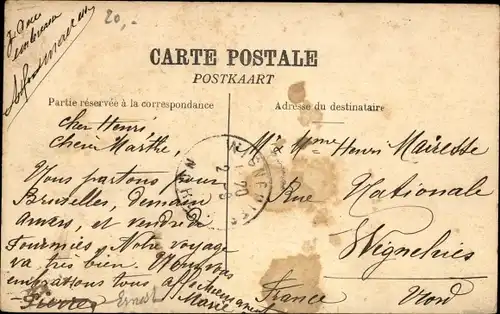 20,-
CARTE POSTALE
POSTKAART
Partie réservée à la correspondance
Adresse du destinataire
Cher Henri,
Chère Marthe,
Nous partons pour
Bruxelles, demain
Anvers, et vendredi
Fourmies. Notre voyage
va très bien. Nous vous
embrassons tous affectueusement
Marie
Pierre
Ernest
Mr & Mme Henri Mairesse
Rue Nationale
Wignehies
France Nord
WIGNEHIES
NORD